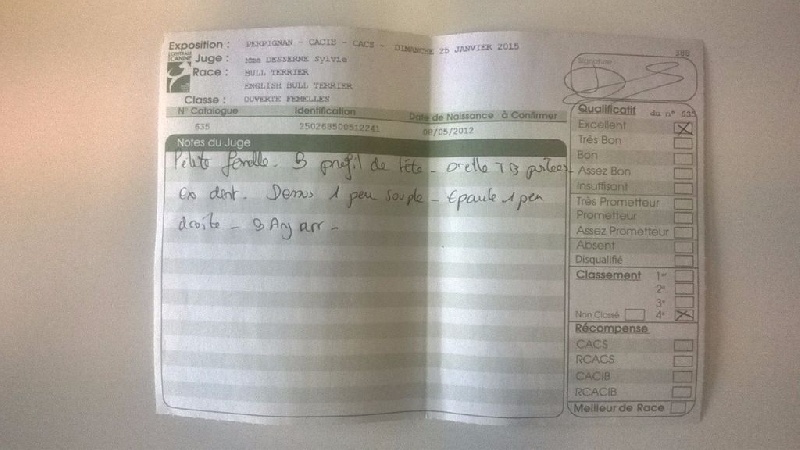 Exposition : PERPIGNAN - CACIB - CACS - DIMANCHE 25 JANVIER 2015
Juge : Mme DESSERNE Sylvie
Race : BULL TERRIER
ENGLISH BULL TERRIER
Classe : OUVERTE FEMELLES
N° Catalogue Identification Date de Naissance à Confirmer
635 250268500512241 08/05/2012
Notes du Juge
Petite femelle - B profil de tête - oreille TB portées
Ex dent. Dessus 1 peu souple - Epaule 1 peu
droite - B Ang arr -
Signature
Qualificatif du n° 635
Excellent
Très Bon
Bon
Assez Bon
Insuffisant
Très Prometteur
Prometteur
Assez Prometteur
Absent
Disqualifié
Classement 1er
2e
3e
Non Classé 4e
Récompense
CACS
RCACS
CACIB
RCACIB
Meilleur de Race